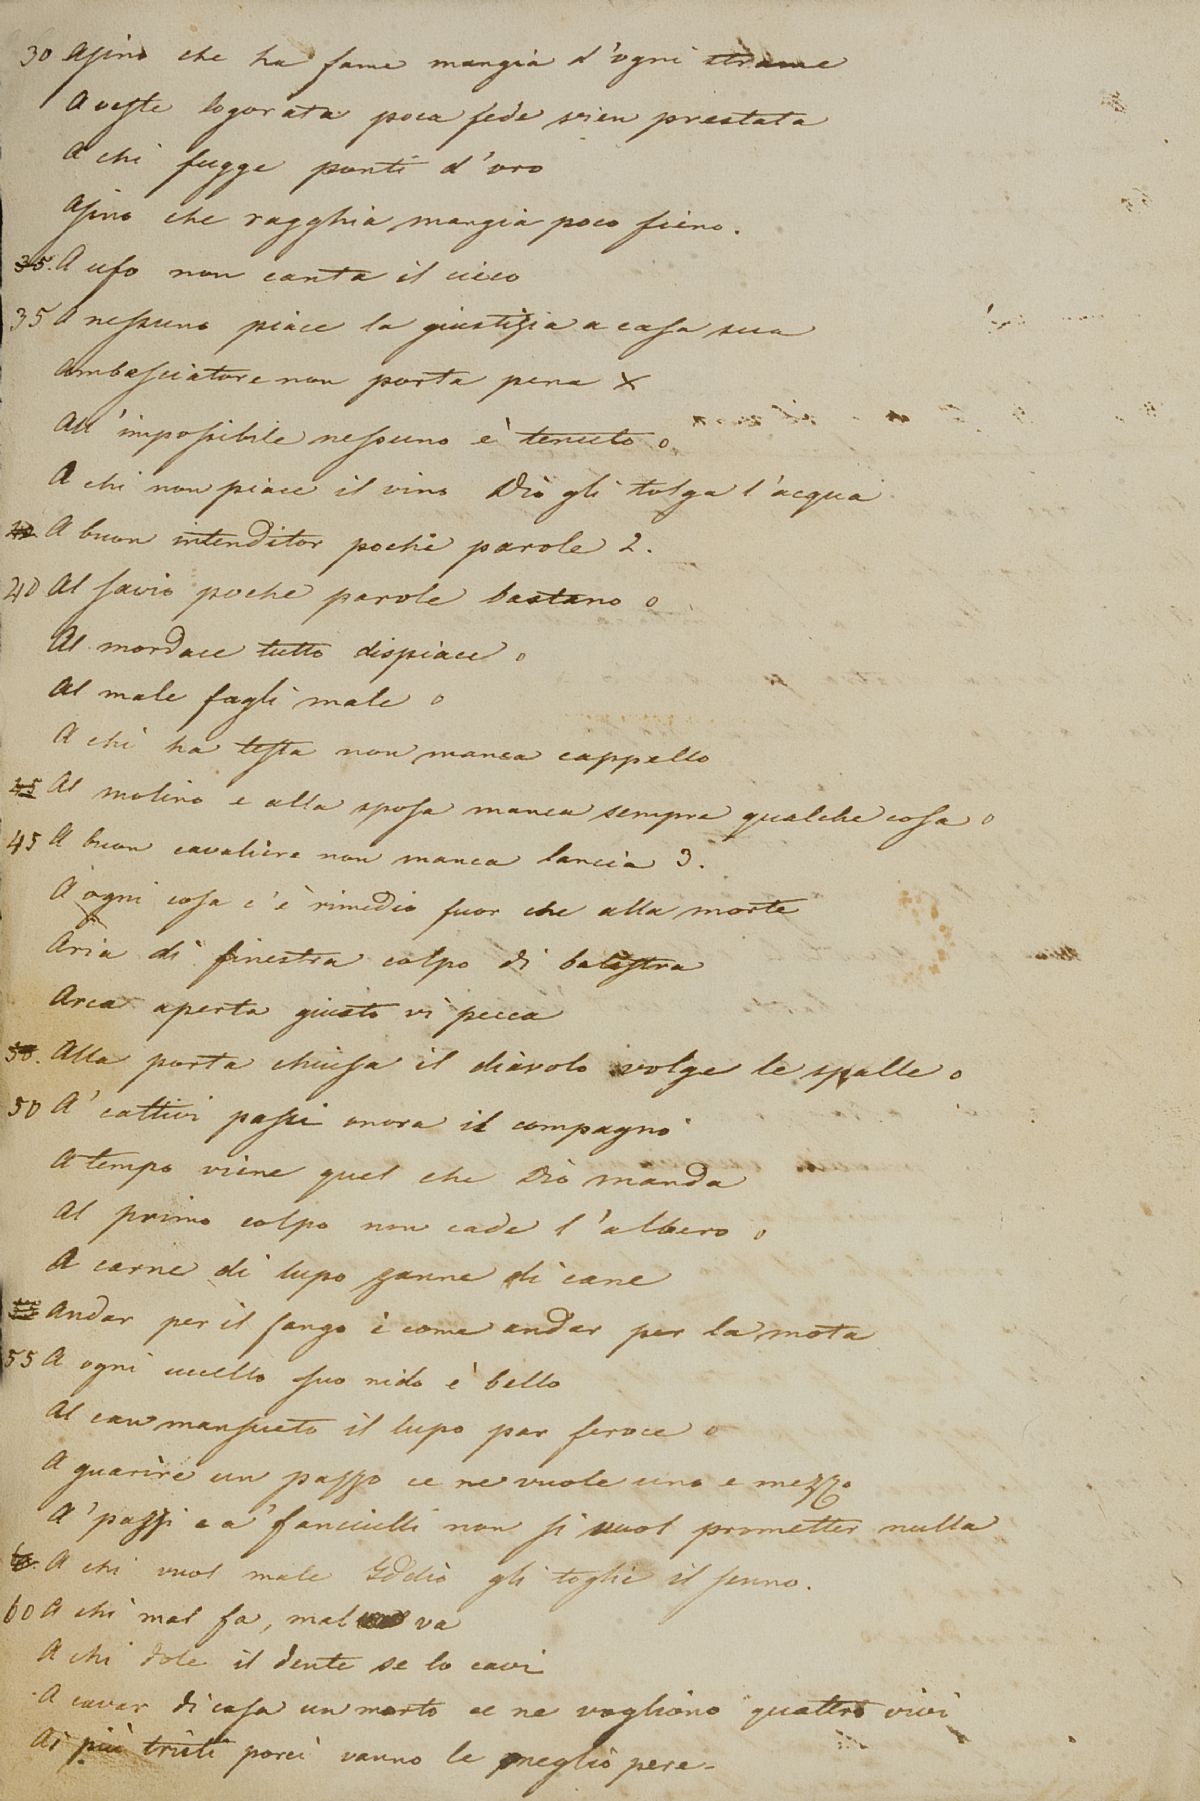 30 Asino che ha fame mangia d'ogni strame
A veste logorata poca fede vien prestata
A chi fugge ponti d'oro
Asino che ragghia mangia poco fieno.
35. A ufo non canta il cieco
35 A nessuno piace la giustizia a casa sua
Ambasciatore non porta pena x
All'impossibile nessuno è tenuto o
A chi non piace il vino Dio gli tolga l'acqua
40 A buon intenditor poche parole 2.
40 Al savio poche parole bastano o
Al mordace tutto dispiace o
Al male fagli male o
A chi ha testa non manca cappello
45 Al molino e alla sposa manca sempre qualche cosa o
45 A buon cavaliere non manca lancia 3.
A ogni cosa c'è rimedio fuor che alla morte
Aria di finestra colpo di balestra
Arca aperta giusto vi pecca
50. Alla porta chiusa il diavolo volge le spalle o
50 A' cattivi passi onora il compagno
A tempo viene quel che Dio manda
Al primo colpo non cade l'albero o
A carne di lupo zanne di cane
55 Andar per il fango è come andar per la mota
55 A ogni uccello suo nido è bello
Al can mansueto il lupo par feroce o
A guarire un pazzo ce ne vuole uno e mezzo
A' pazzi e a' fanciulli non si vuol prometter nulla
60. A chi vuol male Iddio gli toglie il senno.
60 A chi mal fa, mal va
A chi dole il dente se lo cavi
A cavar di casa un morto ce ne vogliono quattro vivi
Ai più tristi porci vanno le meglio pere-